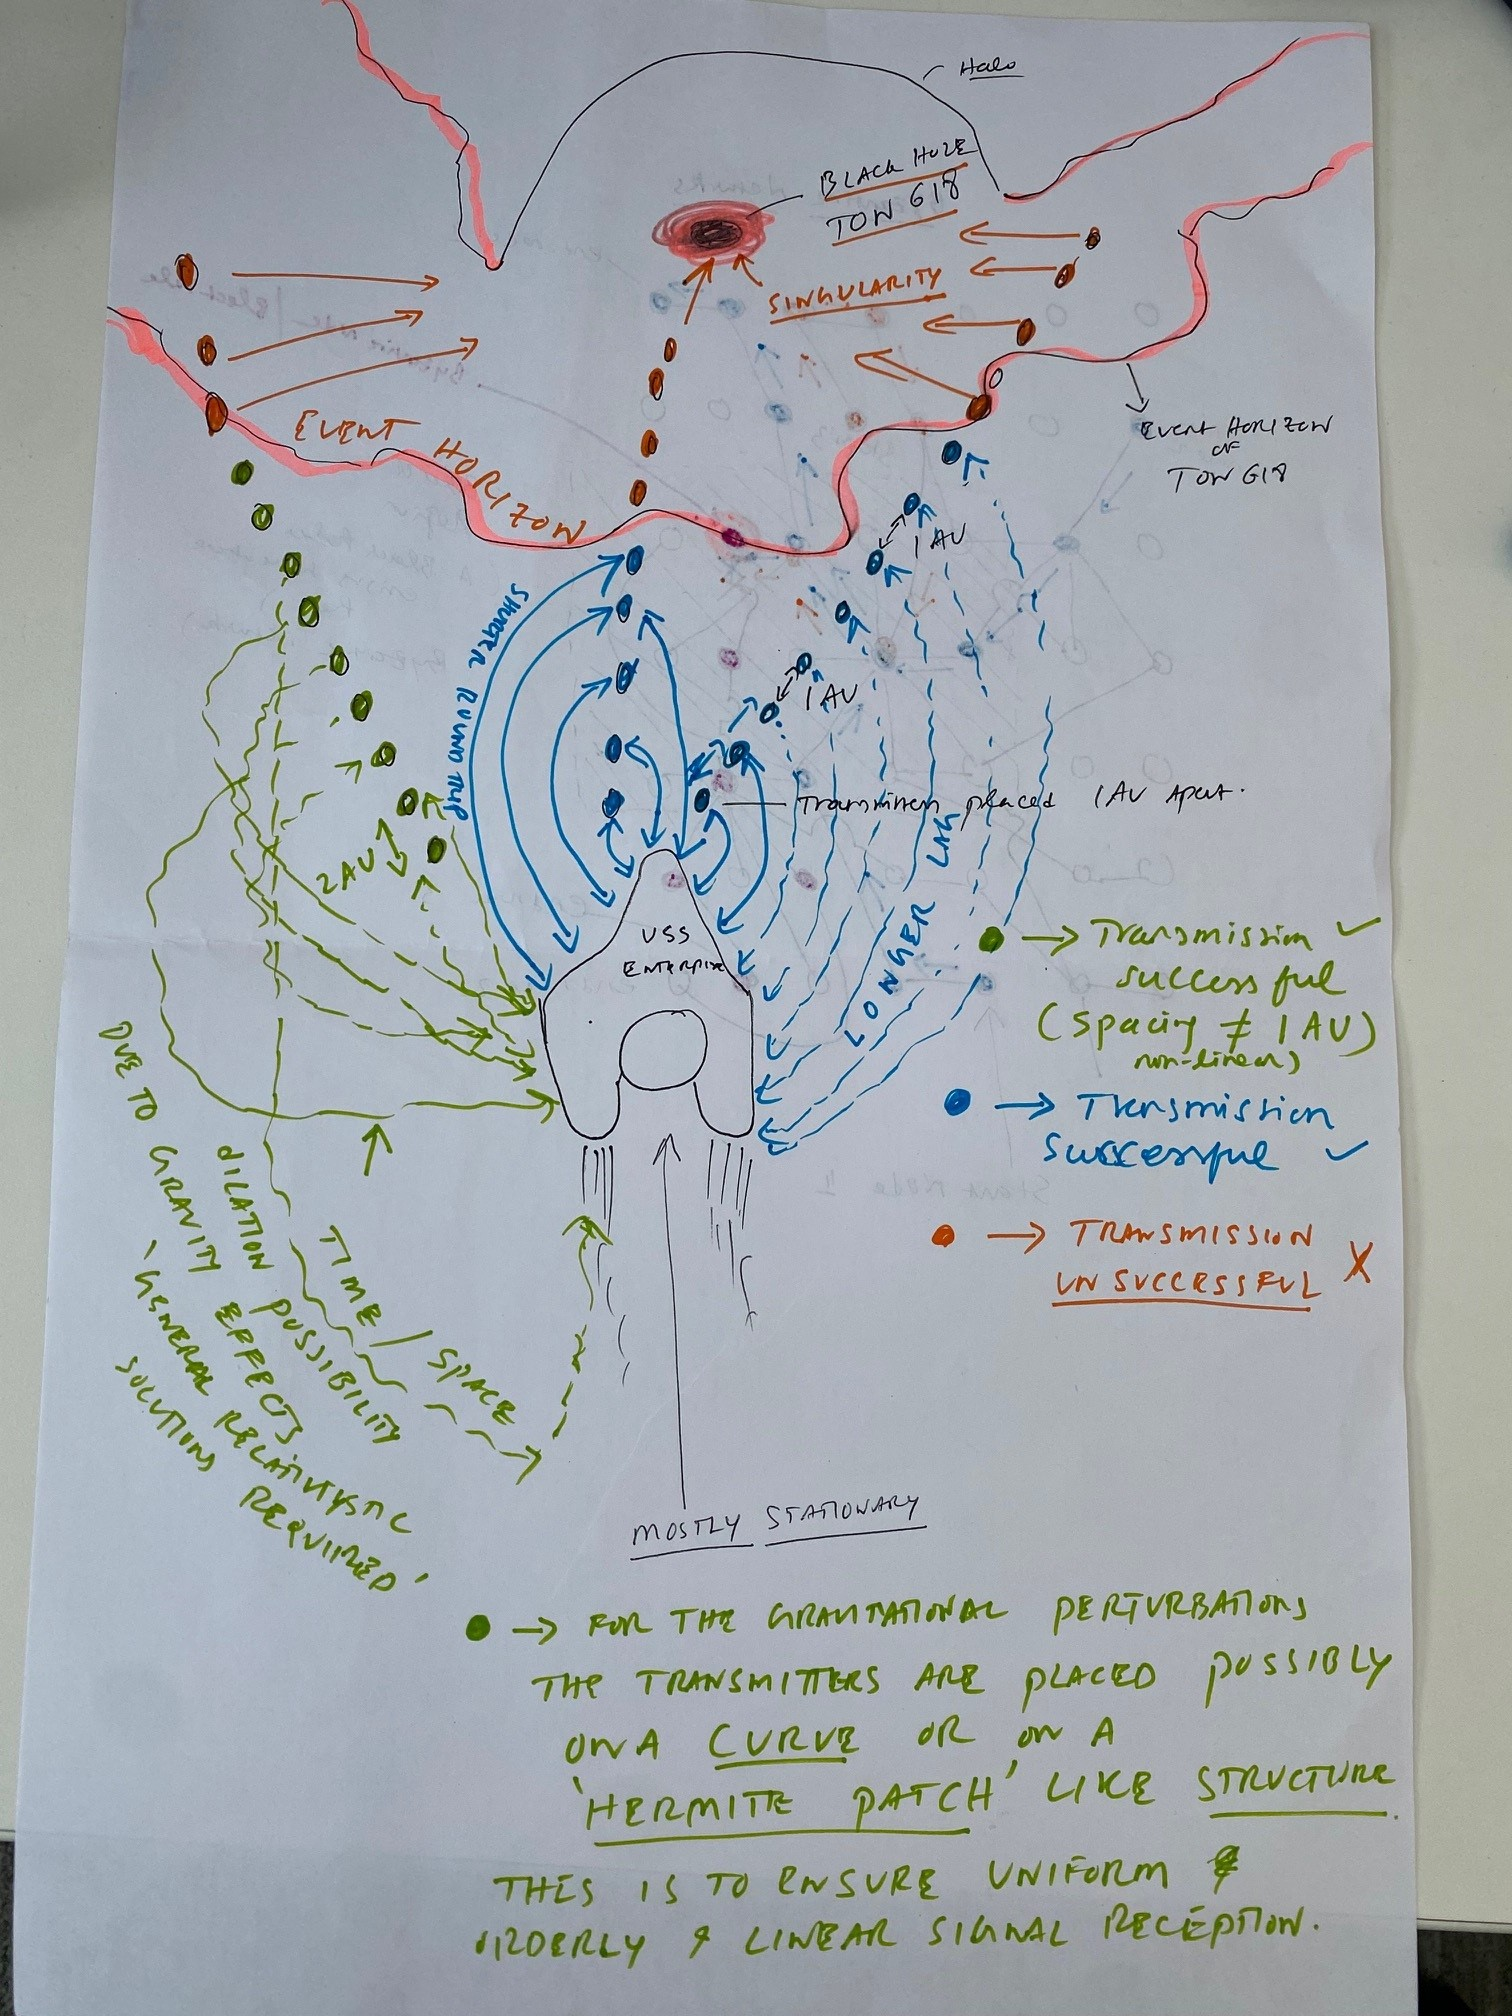 Halo
BLACK HOLE
TON 618
SINGULARITY
EVENT HORIZON
EVENT HORIZON
OF
TON 618
1 AU
1 AU
SHORTER ROUND TRIP
Transmitters placed 1 AU apart.
2 AU
LONGER LAG
USS
ENTERPRISE
Transmission ✓
successful
(spacing ≠ 1 AU)
non-linear)
Transmission
Successful ✓
TRANSMISSION
UNSUCCESSFUL X
TIME / SPACE
DILATION POSSIBILITY
DUE TO GRAVITY EFFECTS
'GENERAL RELATIVISTIC
SOLUTIONS REQUIRED'
MOSTLY STATIONARY
→ FOR THE GRAVITATIONAL PERTURBATIONS
THE TRANSMITTERS ARE PLACED POSSIBLY
ON A CURVE OR ON A
'HERMITE PATCH' LIKE STRUCTURE.
THIS IS TO ENSURE UNIFORM &
ORDERLY & LINEAR SIGNAL RECEPTION.